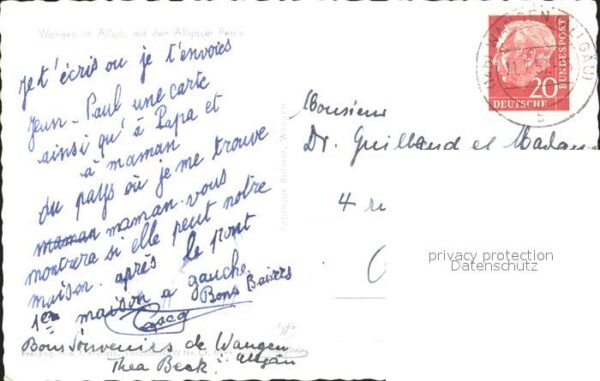 Wangen im Allgäu mit den Allgäuer Bergen
Je t'écris ou je t'envoies
Jean-Paul une carte
ainsi qu'à Papa et
à maman
du pays où je me trouve
maman maman vous
montrera si elle peut notre
maison. après le pont
1er maison a gauche.
Bons Baisers
Bons Souvenirs de Wangen
Thea Beck Allgäu
WANGEN (ALLGÄU)
DEUTSCHE
BUNDESPOST
20
Monsieur
Dr. Guilland et Madame
4 ru
privacy protection
Datenschutz